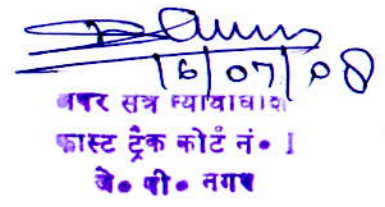 16/07/08
अपर सत्र न्यायाधीश
फास्ट ट्रैक कोर्ट नं० 1
जे० पी० नगर